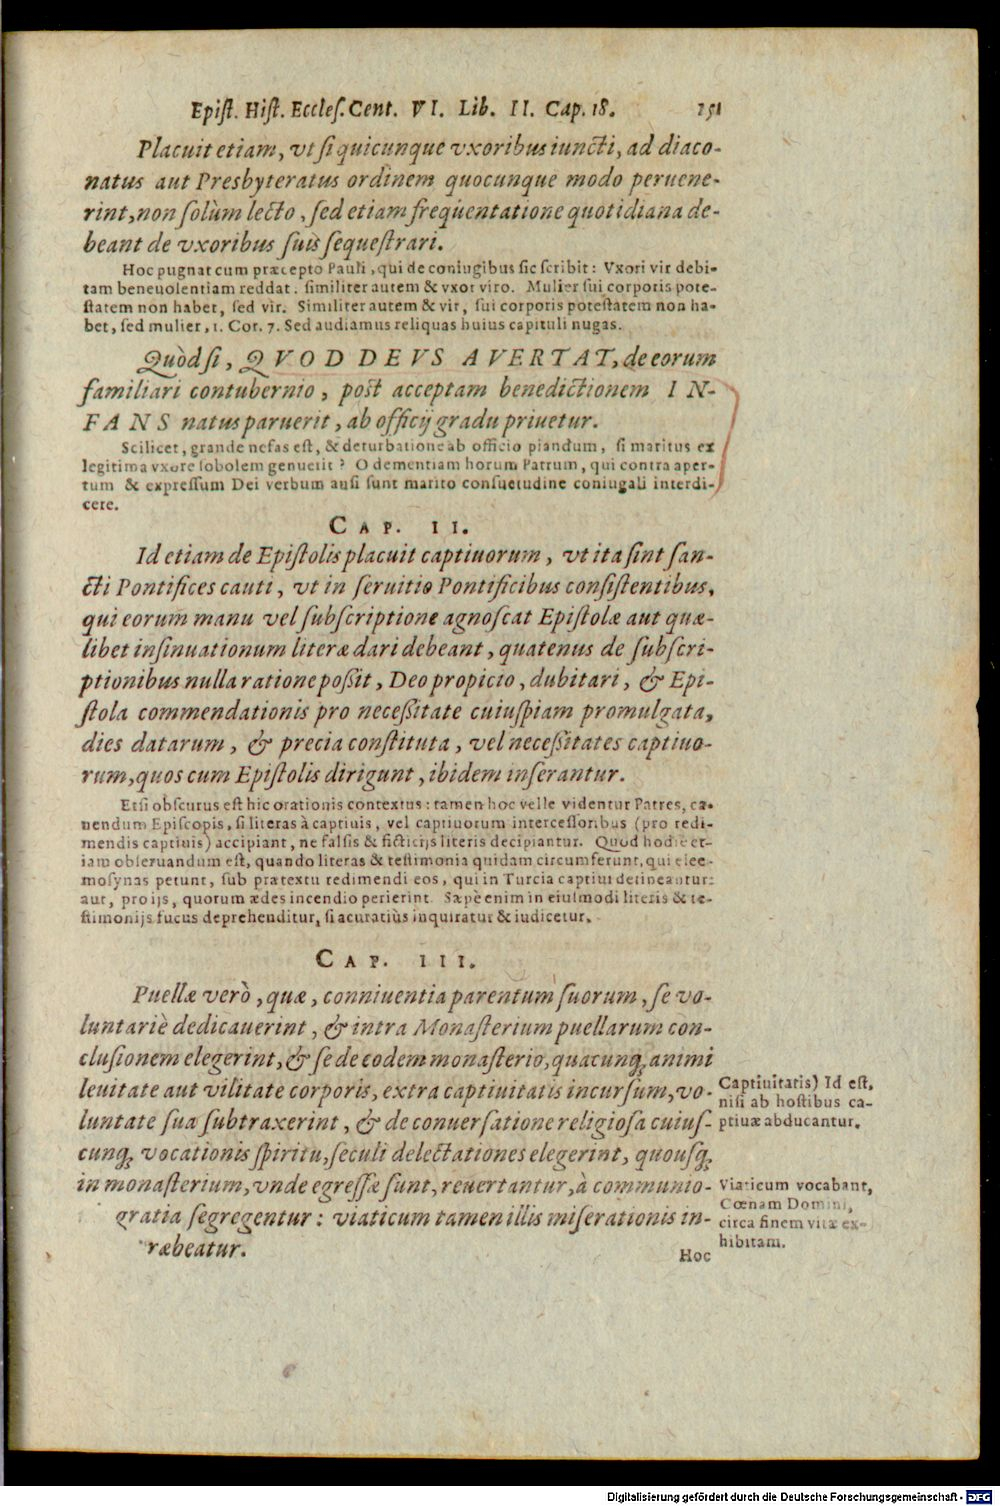 Epist. Hist. Eccles. Cent. VI. Lib. II. Cap. 18. 151
Placuit etiam, vt si quicunque vxoribus iuncti, ad diaco-
natus aut Presbyteratus ordinem quocunque modo peruene-
rint, non solùm lecto, sed etiam frequentatione quotidiana de-
beant de vxoribus suis sequestrari.
Hoc pugnat cum præcepto Pauli, qui de coniugibus sic scribit: Vxori vir debi-
tam beneuolentiam reddat: similiter autem & vxor viro. Mulier sui corporis pote-
statem non habet, sed vir. Similiter autem & vir, sui corporis potestatem non ha-
bet, sed mulier, 1. Cor. 7. Sed audiamus reliquas huius capituli nugas.
Quòd si, QVOD DEVS AVERTAT, de eorum
familiari contubernio, post acceptam benedictionem IN-
FANS natus paruerit, ab officij gradu priuetur.
Scilicet, grande nefas est, & deturbatione ab officio piandum, si maritus ex
legitima vxore sobolem genuerit? O dementiam horum Patrum, qui contra aper-
tum & expressum Dei verbum ausi sunt marito consuetudine coniugali interdi-
cere.
CAP. II.
Id etiam de Epistolis placuit captiuorum, vt ita sint san-
cti Pontifices cauti, vt in seruitio Pontificibus consistentibus,
qui eorum manu vel subscriptione agnoscat Epistolæ aut quæ-
libet insinuationum literæ dari debeant, quatenus de subscri-
ptionibus nulla ratione poßit, Deo propicio, dubitari, & Epi-
stola commendationis pro neceßitate cuiuspiam promulgata,
dies datarum, & precia constituta, vel neceßitates captiuo-
rum, quos cum Epistolis dirigunt, ibidem inserantur.
Etsi obscurus est hic orationis contextus: tamen hoc velle videntur Patres, ca-
uendum Episcopis, si literas à captiuis, vel captiuorum intercessoribus (pro redi-
mendis captiuis) accipiant, ne falsis & fictitijs literis decipiantur. Quod hodie et-
iam obseruandum est, quando literas & testimonia quidam circumferunt, qui elee-
mosynas petunt, sub prætextu redimendi eos, qui in Turcia captiui detineantur:
aut, pro ijs, quorum ædes incendio perierint. Sæpè enim in eiusmodi literis & te-
stimonijs fucus deprehenditur, si acuratiùs inquiratur & iudicetur.
CAP. III.
Puellæ verò, quæ, conniuentia parentum suorum, se vo-
luntariè dedicauerint, & intra Monasterium puellarum con-
clusionem elegerint, & se de eodem monasterio, quacunq; animi
leuitate aut vilitate corporis, extra captiuitatis incursum, vo-
luntate sua subtraxerint, & de conuersatione religiosa cuius-
cunq; vocationis spiritu, seculi delectationes elegerint, quousq;
in monasterium, vnde egressæ sunt, reuertantur, à communio-
gratia segregentur: viaticum tamen illis miserationis in-
ræbeatur.
Captiuitatis) Id est,
nisi ab hostibus ca-
ptiuæ abducantur.
Viaticum vocabant,
Cœnam Domini,
circa finem vitæ ex-
hibitam.
Hoc
Digitalisierung gefördert durch die Deutsche Forschungsgemeinschaft - DFG